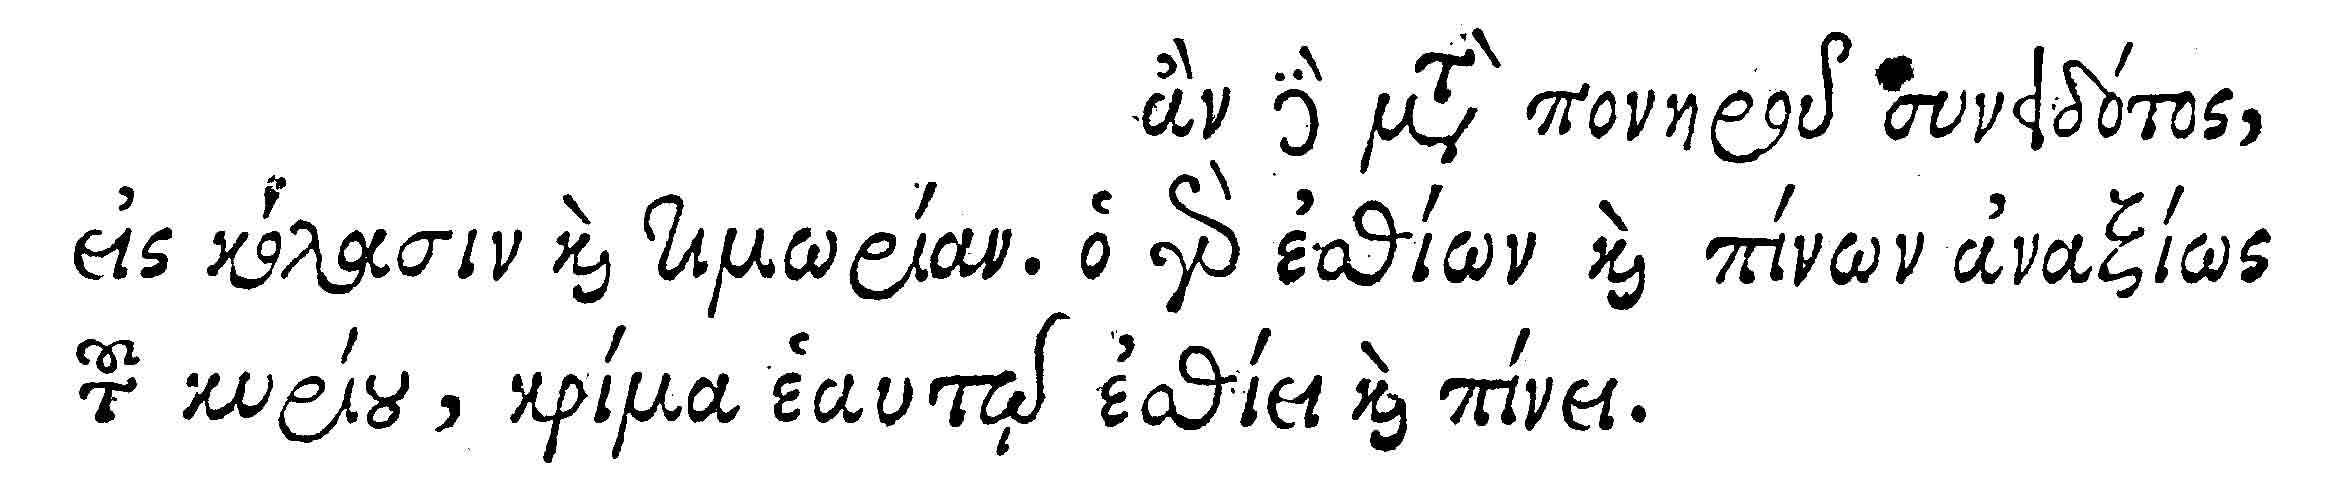 ἂν δὲ μετὰ πονηροῦ συνειδότος,
εἰς κόλασιν καὶ τιμωρίαν. ὁ γὰρ ἐσθίων καὶ πίνων ἀναξίως
τοῦ κυρίου, κρίμα ἑαυτῷ ἐσθίει καὶ πίνει.